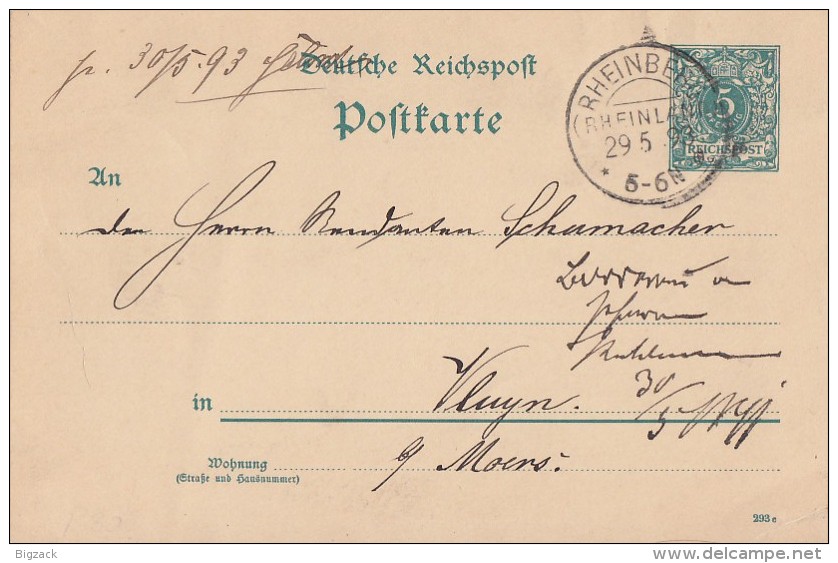 30/5.93
Deutsche Reichspost
Postkarte
RHEINBERG
(RHEINLAND)
29 5 93
* 5-6N *
5
REICHSPOST
An
den Herrn Rendanten Schumacher
30/5
in Vluyn.
Wohnung
(Straße und Hausnummer)
b/ Moers.
293 e
Bigzack
www.delcampe.net